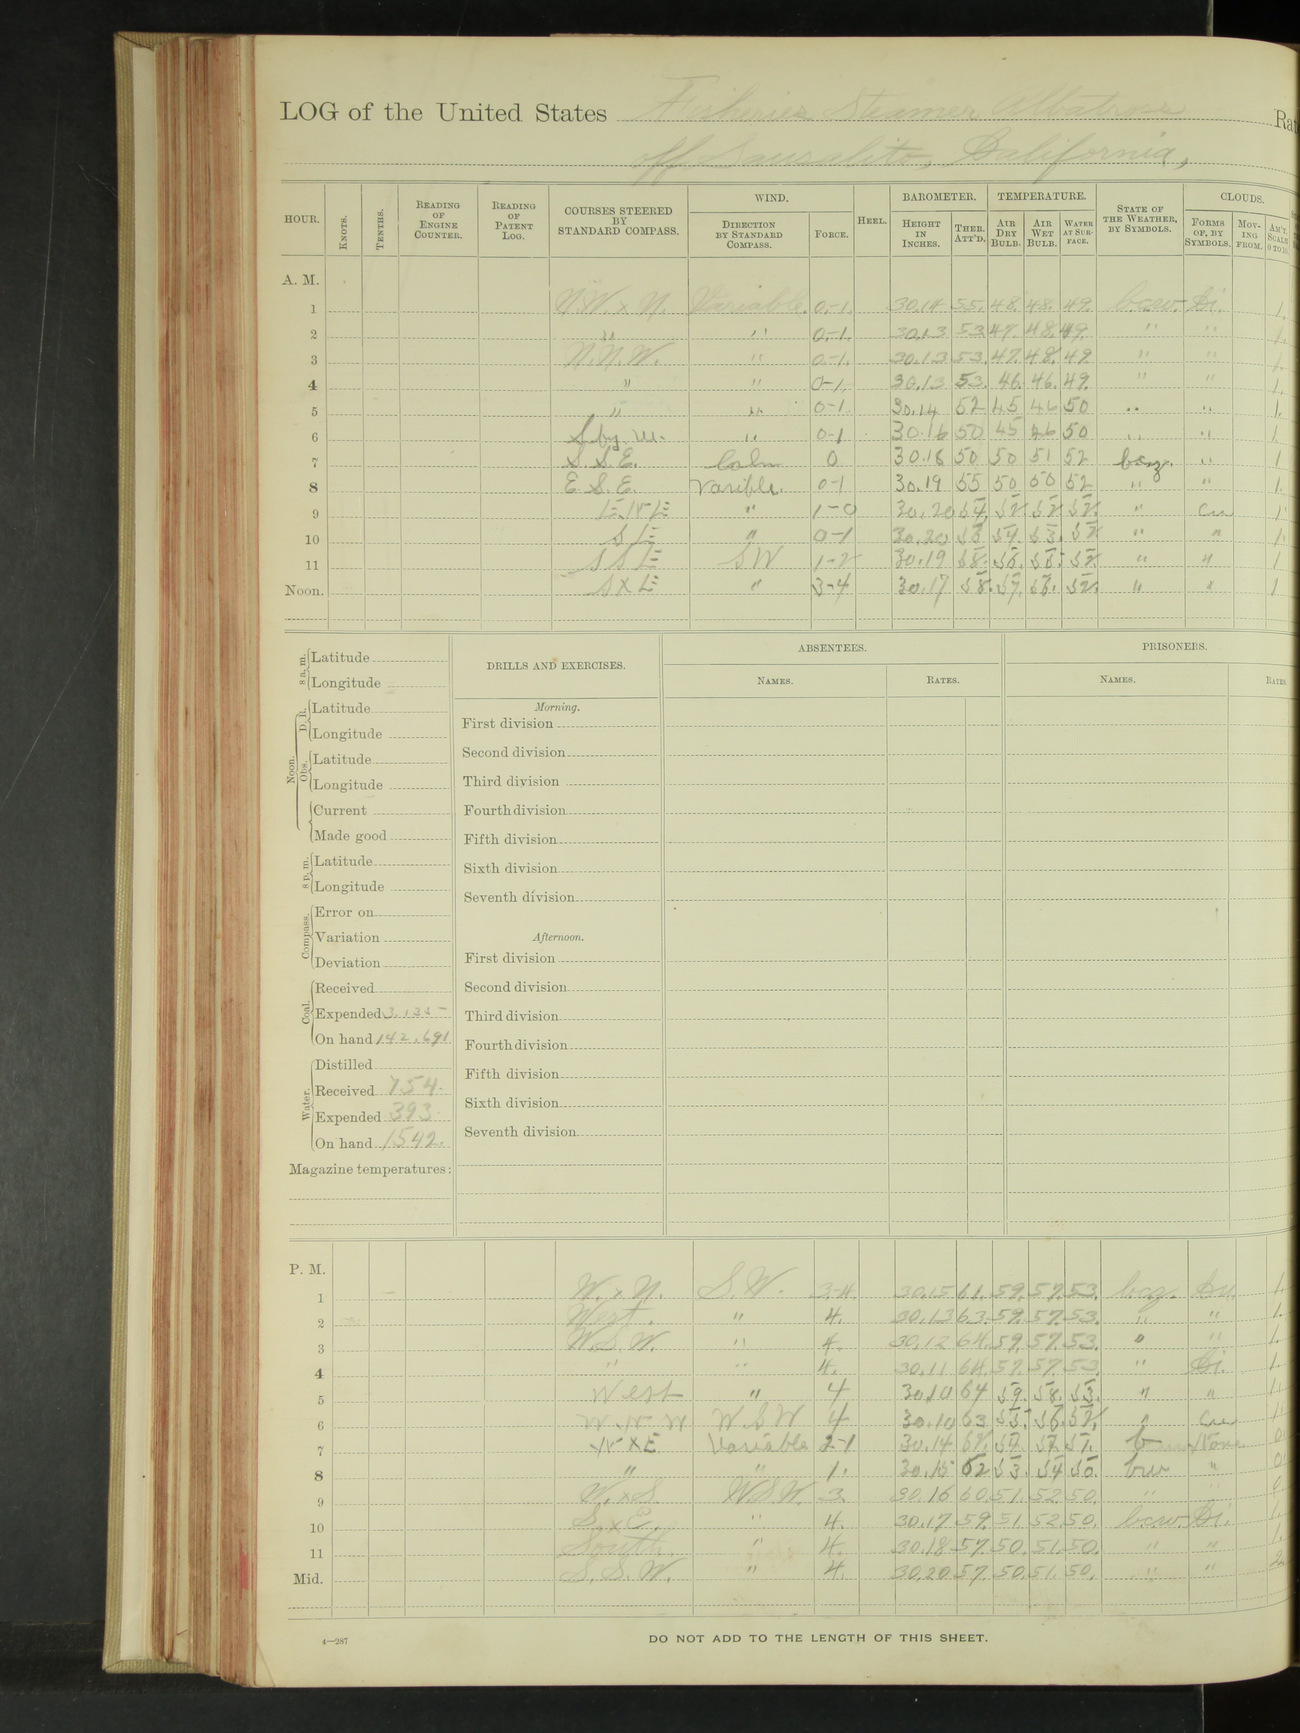 LOG of the United States Fisheries Steamer Albatross Rat
off Sausalito, California,
HOUR. KNOTS. TENTHS. READING OF ENGINE COUNTER. READING OF PATENT LOG. COURSES STEERED BY STANDARD COMPASS. WIND. DIRECTION BY STANDARD COMPASS. FORCE. HEEL. BAROMETER. HEIGHT IN INCHES. THER. ATT'D. TEMPERATURE. AIR DRY BULB. AIR WET BULB. WATER AT SURFACE. STATE OF THE WEATHER, BY SYMBOLS. CLOUDS. FORMS OF, BY SYMBOLS. MOVING FROM. AM'T. SCALE 0 TO 10.
A. M.
1 N.W. x N. Variable. 0-1. 30.14 55. 48. 48. 49. bcw. Ci. 1.
2 " " 0-1. 30.13 53 47. 48. 49. " " 1.
3 N.N.W. " 0-1. 30.13 53. 47. 48. 49 " " 1.
4 " " 0-1. 30.13 53. 46. 46. 49. " " 1.
5 " " 0-1. 30.14 52 45 46 50 " " 1.
6 S by W. " 0-1 30.16 50 45 46 50 " " 1
7 S.S.E. Calm 0 30.18 50 50 51 52 bcz. " 1
8 E.S.E. Varible. 0-1 30.19 55 50 50 52 " " 1.
9 ENE " 1-0 30.20 54. 52 52 52. " Cu 1
10 SE " 0-1 30.20 53. 54. 53. 52 " " 1.
11 SSE SW 1-2 30.19 58. 56. 56. 52 " " 1
Noon. SxE " 3-4 30.17 58. 57. 56. 52. " " 1
DRILLS AND EXERCISES. ABSENTEES. PRISONERS.
NAMES. RATES. NAMES. RATES.
8 a. m. Latitude
Longitude
Noon. D. R. Latitude
Longitude
Obs. Latitude
Longitude
Current
Made good
8 p. m. Latitude
Longitude
Compass. Error on
Variation
Deviation
Coal. Received
Expended
On hand 142,691
Water. Distilled
Received 754.
Expended 393
On hand 1542.
Magazine temperatures:
Morning.
First division
Second division
Third division
Fourth division
Fifth division
Sixth division
Seventh division
Afternoon.
First division
Second division
Third division
Fourth division
Fifth division
Sixth division
Seventh division
P. M.
1 W. x N. S.W. 3-4. 30.15 61. 59. 57. 53. bcz. Cu. 1.
2 West. " 4. 30.13 63. 59. 57. 53. " " 1.
3 W.S.W. " 4. 30.12 64. 59. 57. 53. " " 1.
4 " " 4. 30.11 64. 57. 57. 53 " Ci. 1.
5 West " 4 30.10 64 59. 58. 53. " " 1.
6 W.N.W WSW 4 30.10 63 55. 56. 52. " Cu 1
7 NxE Variable 2-1 30.14 62. 54. 52. 51. b None 0
8 " " 1. 30.15 62 53. 54 50. bw " 0
9 W. x S. W.S.W. 3 30.16 60. 51. 52. 50. " " 0
10 S. x E. " 4. 30.17 59. 51. 52. 50. bcw Ci. 1.
11 South. " 4. 30.18 57. 50. 51. 50. " " 1.
Mid. S.S.W. " 4. 30.20 57. 50. 51. 50. " "
4—287 DO NOT ADD TO THE LENGTH OF THIS SHEET.